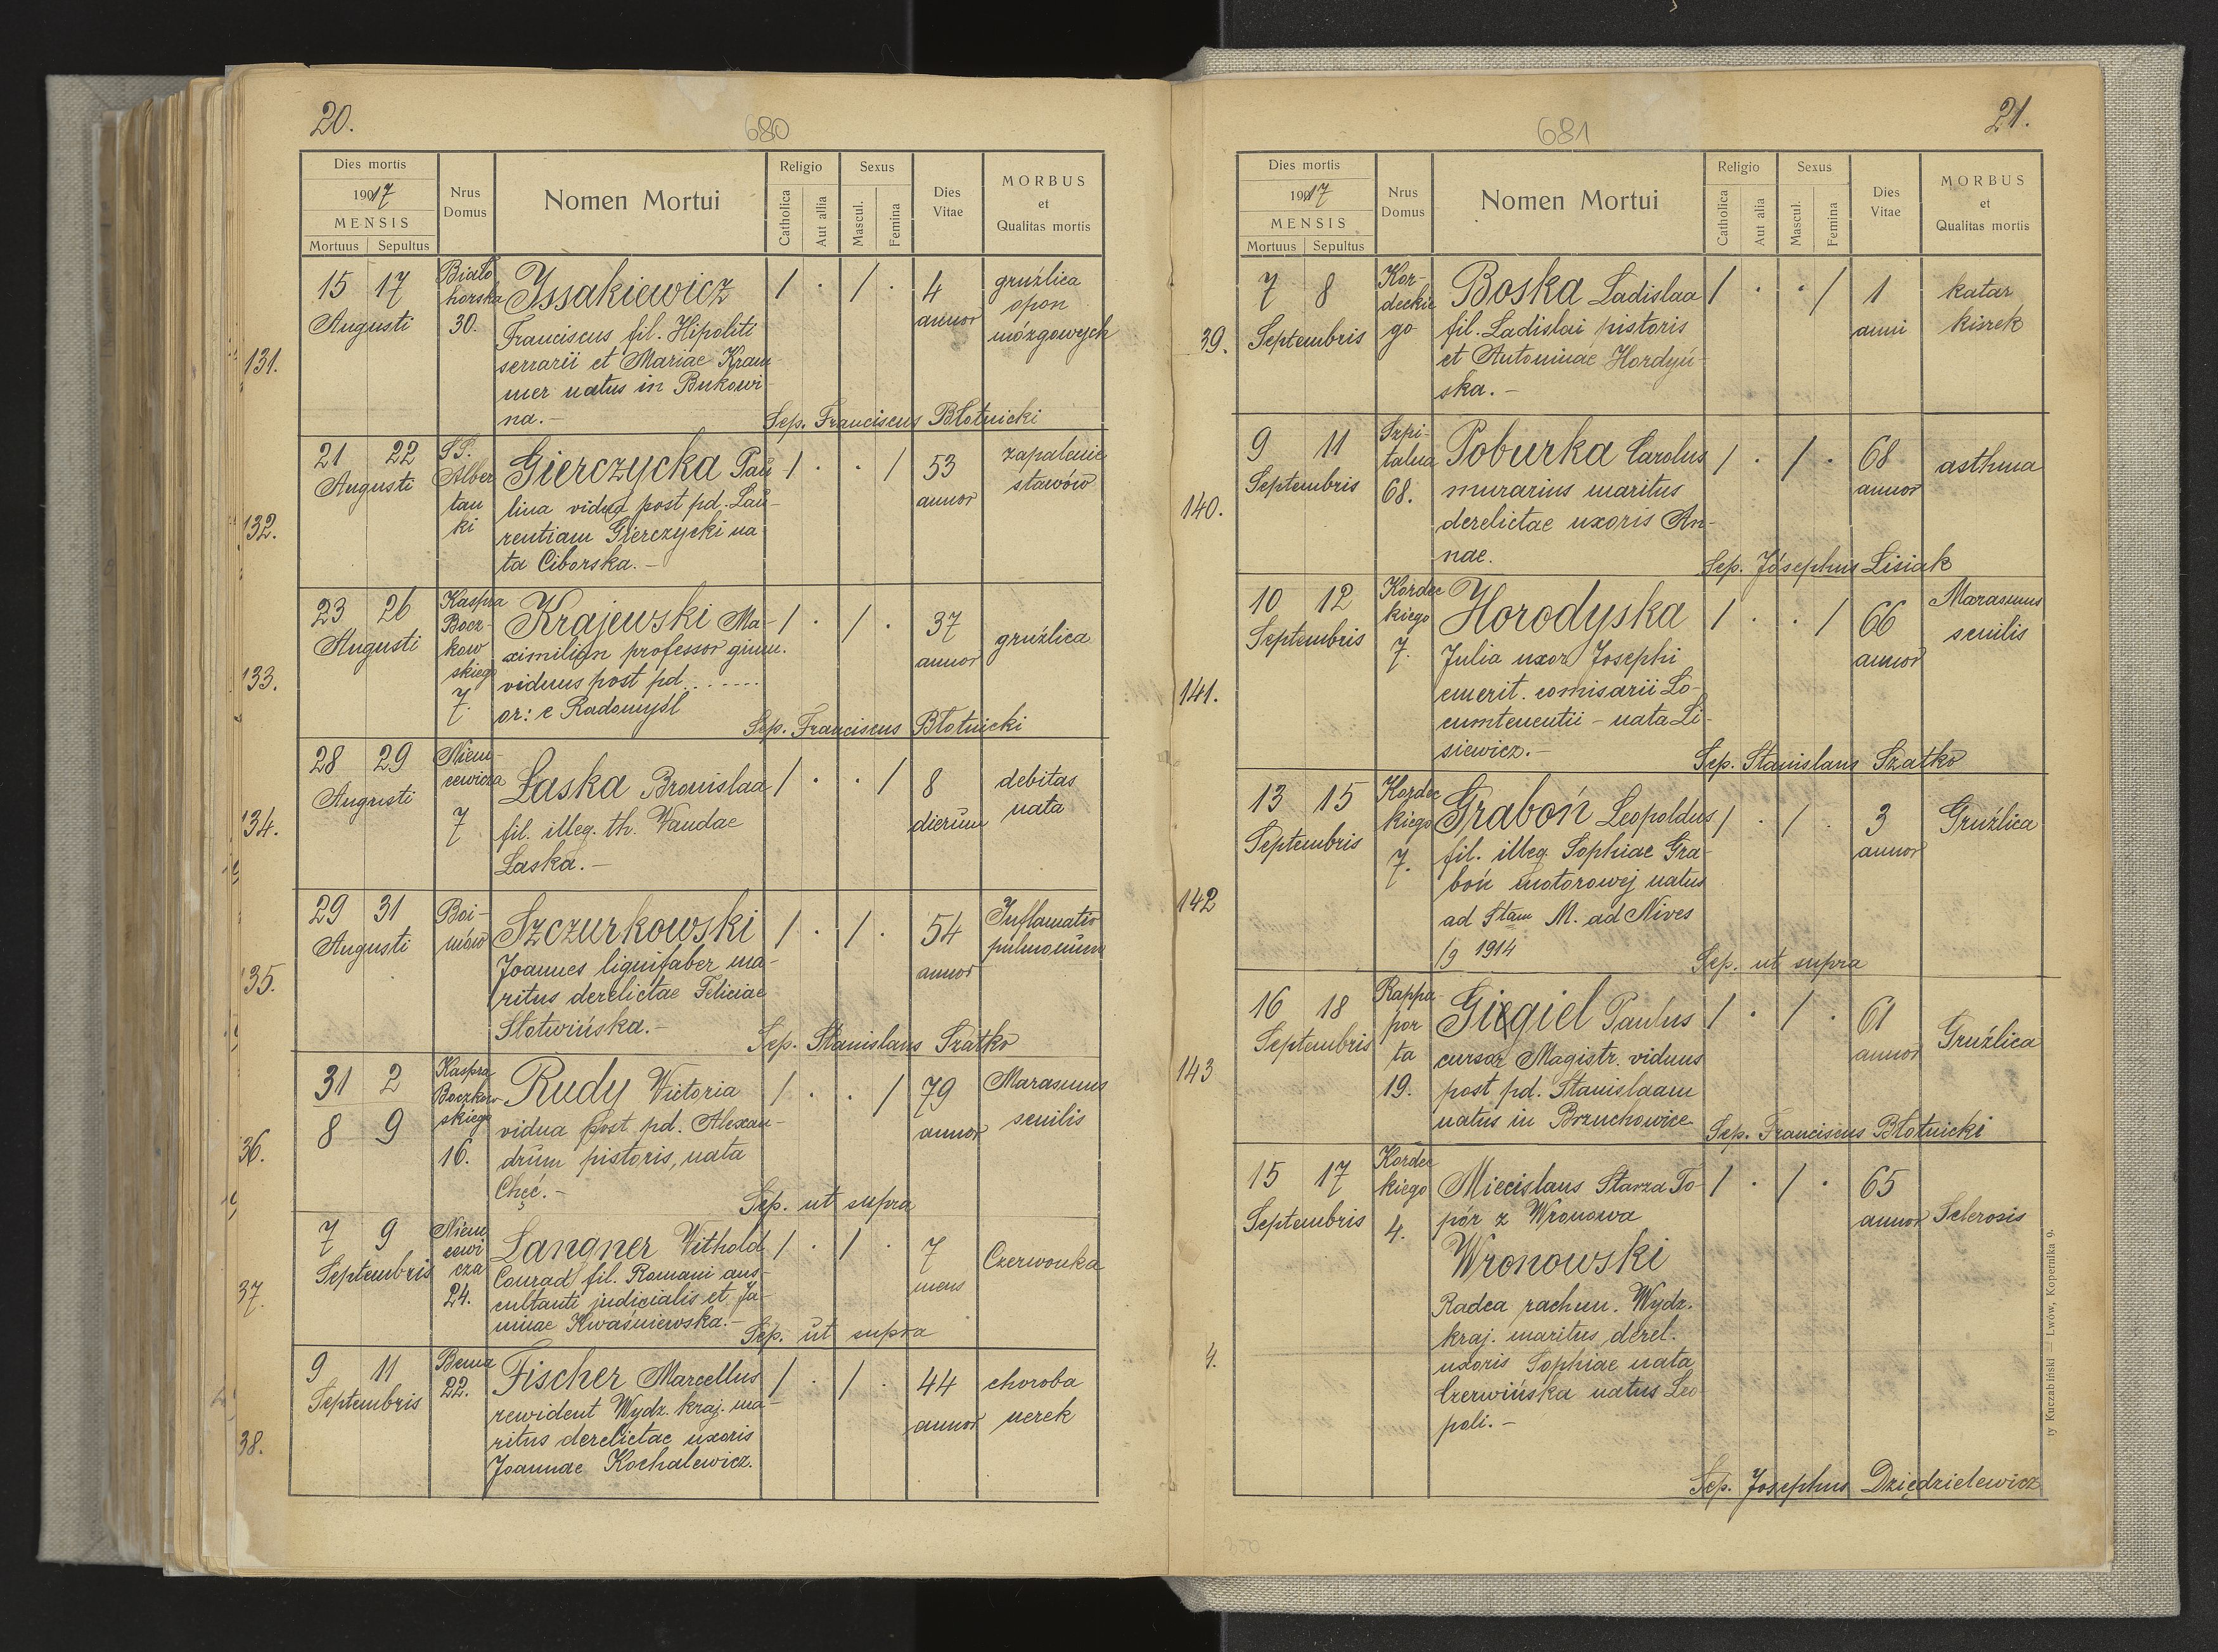 20.
680
Dies mortis
19017
MENSIS
Mortuus Sepultus
Nrus Domus
Nomen Mortui
Religio
Catholica
Aut allia
Sexus
Mascul.
Femina
Dies Vitae
MORBUS
et
Qualitas mortis
131.
15 17
Augusti
Biało
horska
30.
Issakiewicz
Franciscus fil. Hipoliti
serrarii et Mariae Kram
mer natus in Bukowi
na.-
1 . 1 .
4
annor
gruźlica
opon
mózgowych
Sep. Franciscus Błotnicki
132.
21 22
Augusti
SS.
Alber
tan
ki
Gierczycka Pau
lina vidua post pd. Lau-
rentium Gierczycki na
ta Ciborska.-
1 . . 1
53
annor
zapalenie
stawów
133.
23 26
Augusti
Kaspra
Bocz-
kow
skiego
7.
Krajewski Ma-
ximilian professor gimn.
viduus post pd. ......
or: e Radomyśl
1 . 1 .
37
annor
gruźlica
Sep. Franciscus Błotnicki
134.
28 29
Augusti
Niem-
cewicza
7
Laska Bronislaa
fil. illeg. th. Wandae
Laska.-
1 . . 1
8
dierum
debitas
nata
135.
29 31
Augusti
Boi-
mów
Szczurkowski
Joannes lignifaber ma-
ritus derelictae Feliciae
Słotwińska.-
1 . 1 .
54
annor
Inflamatio
pulmonum
Sep. Stanislaus Szatko
36.
31 2
8 9
Kaspra
Boczkow-
skiego
16.
Rudy Victoria
vidua post pd. Alexan-
drum pistoris, nata
Chęć.-
1 . . 1
79
annor
Marasmus
senilis
Sep. ut supra
37.
7 9
Septembris
Niem
cewi
cza
24.
Langner Withold
Conrad fil. Romani aus-
cultanti judicialis et Ja-
ninae Kwaśniewska.-
1 . 1 .
7
mens
Czerwonka
Sep. ut supra
38.
9 11
Septembris
Bema
22.
Fischer Marcellus
rewident Wydz. kraj. ma-
ritus derelictae uxoris
Joannae Kochalewicz.
1 . 1 .
44
annor
choroba
nerek
21.
681
Dies mortis
19017
MENSIS
Mortuus Sepultus
Nrus Domus
Nomen Mortui
Religio
Catholica
Aut alia
Sexus
Mascul.
Femina
Dies Vitae
MORBUS
et
Qualitas mortis
39.
7 8
Septembris
Kor-
deckie
go
Boska Ladislaa
fil. Ladislai pistoris
et Antoninae Hordyń-
ska.-
1 . . 1
1
anni
katar
kiszek
140.
9 11
Septembris
Szpi-
talna
68.
Poburka Carolus
murarius maritus
derelictae uxoris An-
nae.
1 . 1 .
68
annor
asthma
Sep. Jósephus Lisiak
141.
10 12
Septembris
Kordec
kiego
7.
Horodyska
Julia uxor Josephi
emerit. comisarii Lo-
cumtenentii - nata Li-
siewicz.-
1 . . 1
66
annor
Marasmus
senilis
Sep. Stanislaus Szatko
142
13 15
Septembris
Kordec
kiego
7.
Graboń Leopoldus
fil. illeg. Sophiae Gra-
boń motorowej natus
ad Stam M. ad Nives
/9 1914
1 . 1 .
3
annor
Gruźlica
Sep. ut supra
143
16 18
Septembris
Rappa-
por
ta
19.
Giegiel Paulus
cursor Magistr. viduus
post pd. Stanislaam
natus in Brzuchowice
1 . 1 .
61
annor
Gruźlica
Sep. Franciscus Błotnicki
4.
15 17
Septembris
Kordec
kiego
4.
Miecislaus Starza To-
pór z Wronowa
Wronowski
Radca rachun. Wydz.
kraj. maritus derel.
uxoris Sophiae nata
Czerwińska natus Leo
poli.-
1 . 1 .
65
annor
Sclerosis
Sep. Josephus Dziędzielewicz
ty Kuczabiński — Lwów, Kopernika 9.